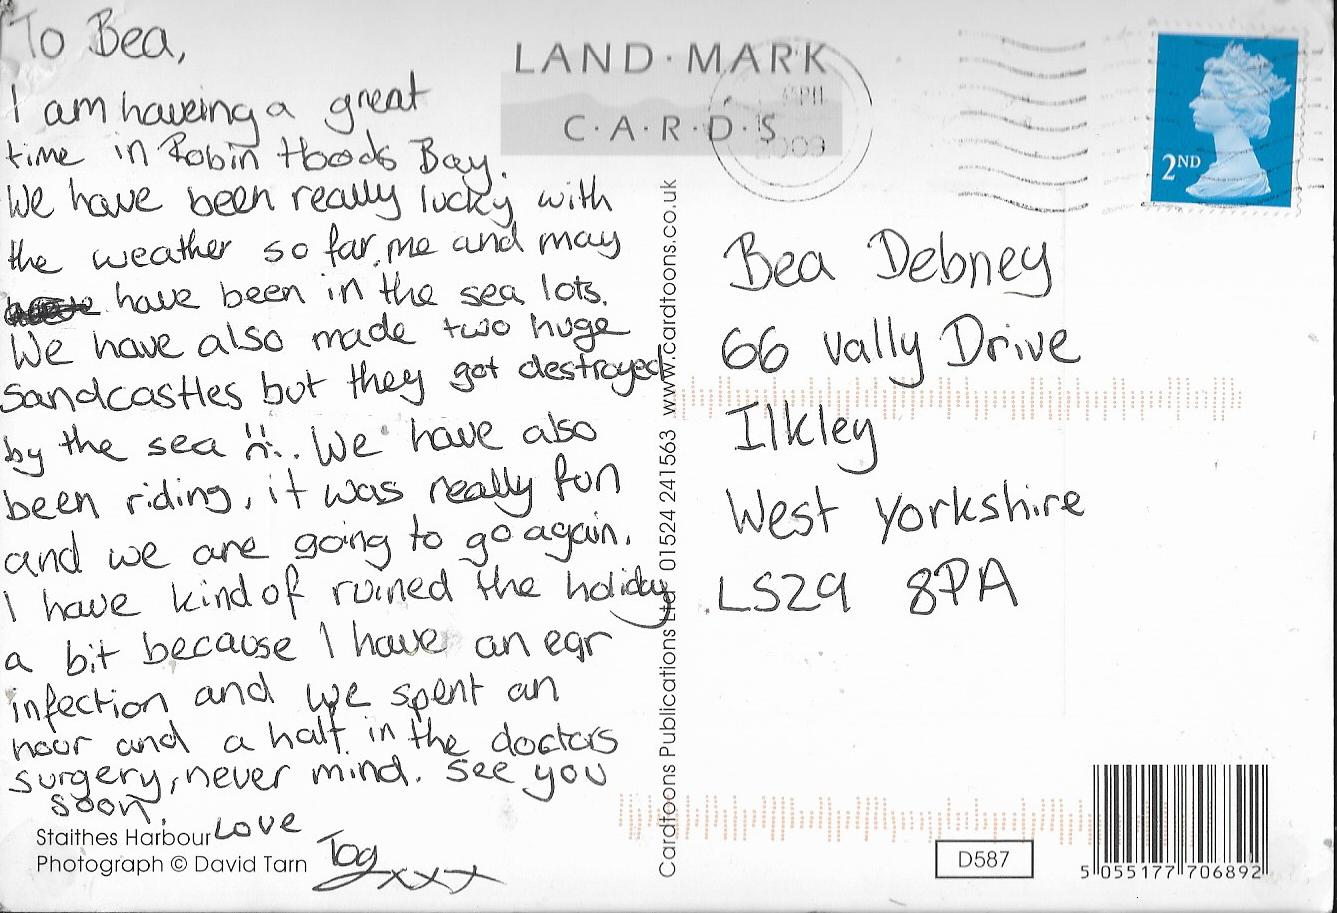 To Bea,
I am haveing a great
time in Robin Hoods Bay.
We have been really lucky with
the weather so far, me and may
have been in the sea lots.
We have also made two huge
Sandcastles but they got destroyed
by the sea :(. We have also
been riding, it was really fun
and we are going to go again.
I have kind of ruined the holiday
a bit because I have an ear
infection and we spent an
hour and a half in the doctors
surgery, never mind. See you
soon.
Love
xxx
Staithes Harbour
Photograph © David Tarn
LAND·MARK
C·A·R·D·S
2009
2ND
Cardtoons Publications Ltd 01524 241563 www.cardtoons.co.uk
Bea Debney
66 Vally Drive
Ilkley
West Yorkshire
LS29 8PA
D587
5 055177 706892